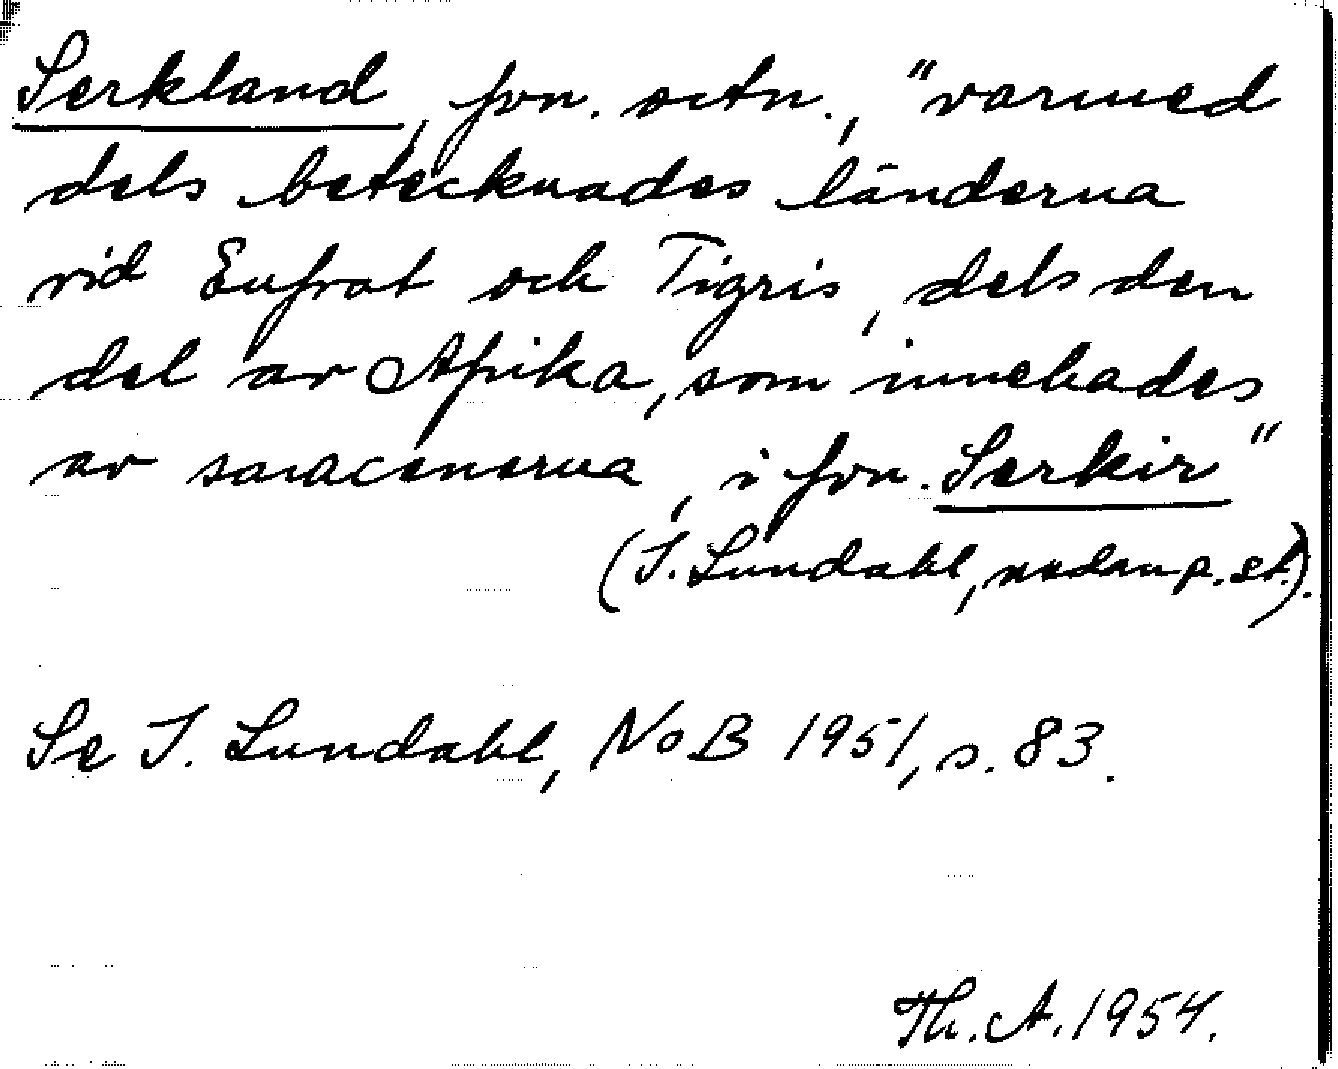 Serkland, fvn. octn., "varmed
dels betecknades länderna
vid Eufrat och Tigris, dels den
del av Afrika, som innehades
av saracenerna, i fvn. Serkir"
(I. Lundahl, nedan p. st.).
Se I. Lundahl, NoB 1951, s. 83.
Th. A. 1954.